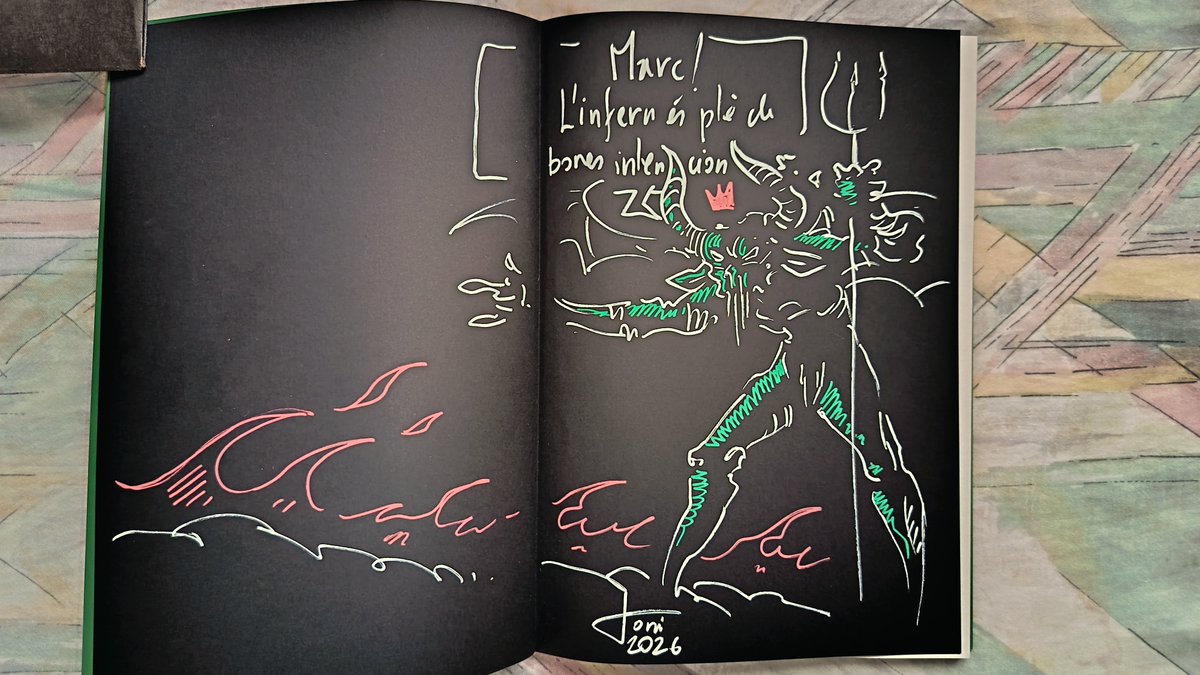 Marc!
L'infern és ple de
bones intencion
Toni
2026